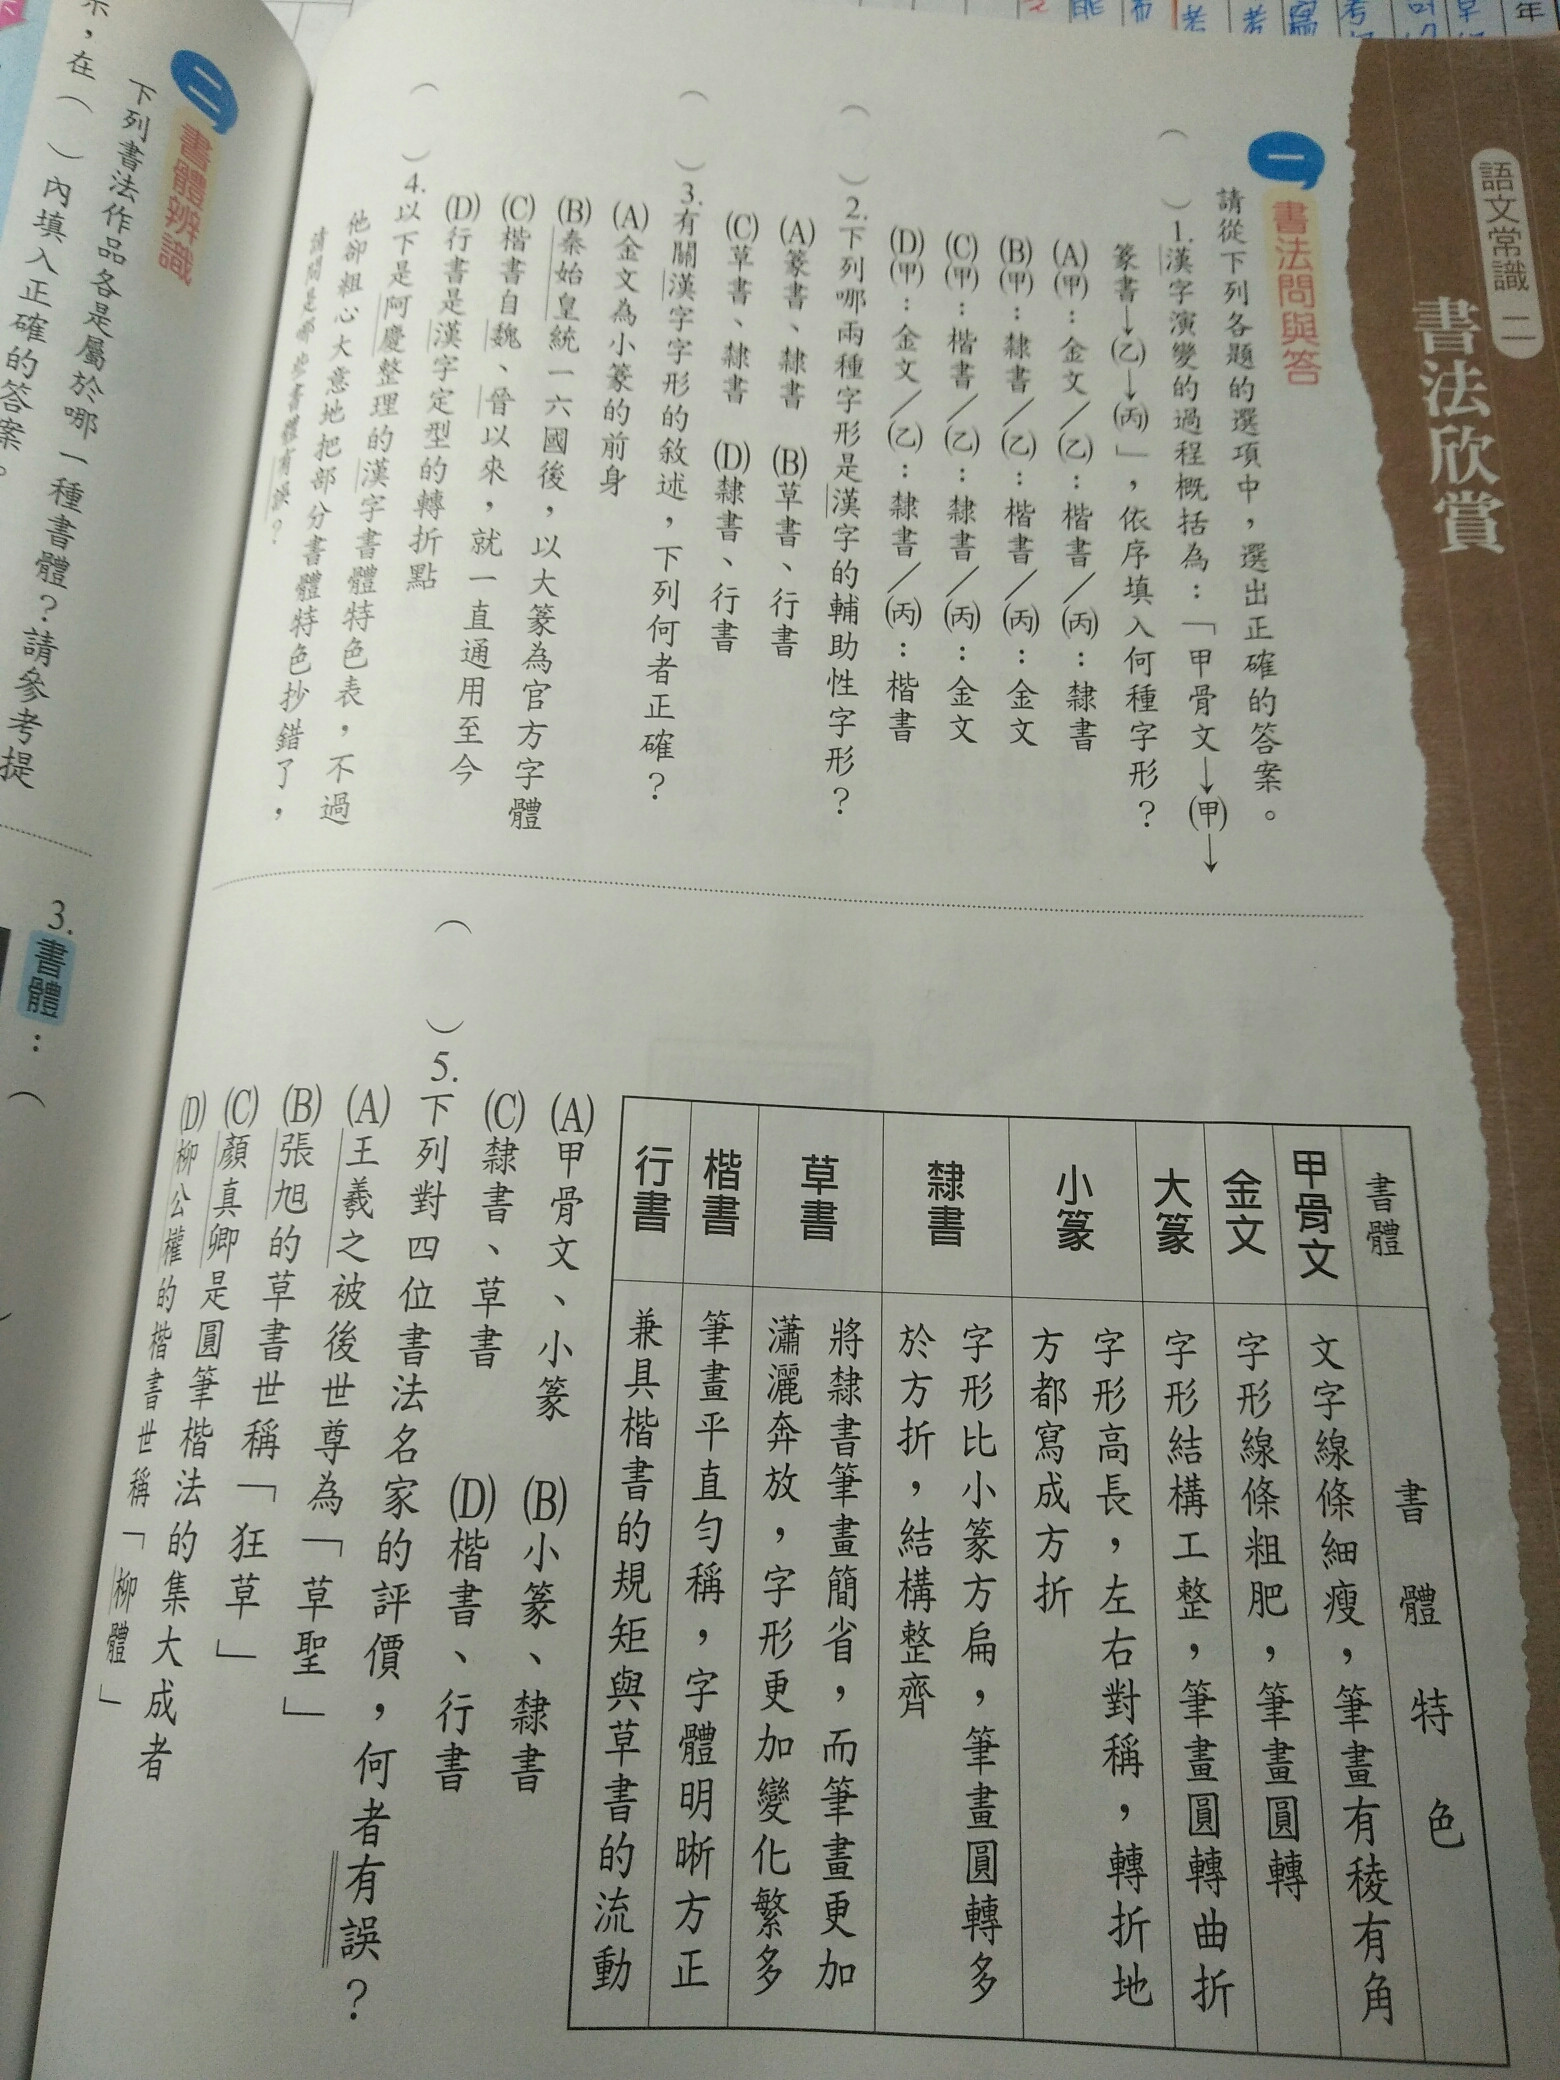 語文常識 二
書法欣賞
一 書法問與答
請從下列各題的選項中，選出正確的答案。
（　）1.漢字演變的過程概括為：「甲骨文→㈥→
篆書→㈦→㈧」，依序填入何種字形？
(A)(甲)：金文／(乙)：楷書／(丙)：隸書
(B)(甲)：隸書／(乙)：楷書／(丙)：金文
(C)(甲)：楷書／(乙)：隸書／(丙)：金文
(D)(甲)：金文／(乙)：隸書／(丙)：楷書
（　）2.下列哪兩種字形是漢字的輔助性字形？
(A)篆書、隸書　(B)草書、行書
(C)草書、隸書　(D)隸書、行書
（　）3.有關漢字字形的敘述，下列何者正確？
(A)金文為小篆的前身
(B)秦始皇統一六國後，以大篆為官方字體
(C)楷書自魏、晉以來，就一直通用至今
(D)行書是漢字定型的轉折點
（　）4.以下是阿慶整理的漢字書體特色表，不過
他卻粗心大意地把部分書體特色抄錯了，
請問是哪些書體有誤？
書體　書體特色
甲骨文　文字線條細瘦，筆畫有稜有角
金文　字形線條粗肥，筆畫圓轉
大篆　字形結構工整，筆畫圓轉曲折
小篆　字形高長，左右對稱，轉折地
方都寫成方折
隸書　字形比小篆方扁，筆畫圓轉多
於方折，結構整齊
草書　將隸書筆畫簡省，而筆畫更加
瀟灑奔放，字形更加變化繁多
楷書　筆畫平直勻稱，字體明晰方正
行書　兼具楷書的規矩與草書的流動
(A)甲骨文、小篆　(B)小篆、隸書
(C)隸書、草書　(D)楷書、行書
（　）5.下列對四位書法名家的評價，何者有誤？
(A)王羲之被後世尊為「草聖」
(B)張旭的草書世稱「狂草」
(C)顏真卿是圓筆楷法的集大成者
(D)柳公權的楷書世稱「柳體」
二 書體辨識
下列書法作品各是屬於哪一種書體？請參考提
示，在（　）內填入正確的答案。
3.書體：（　）